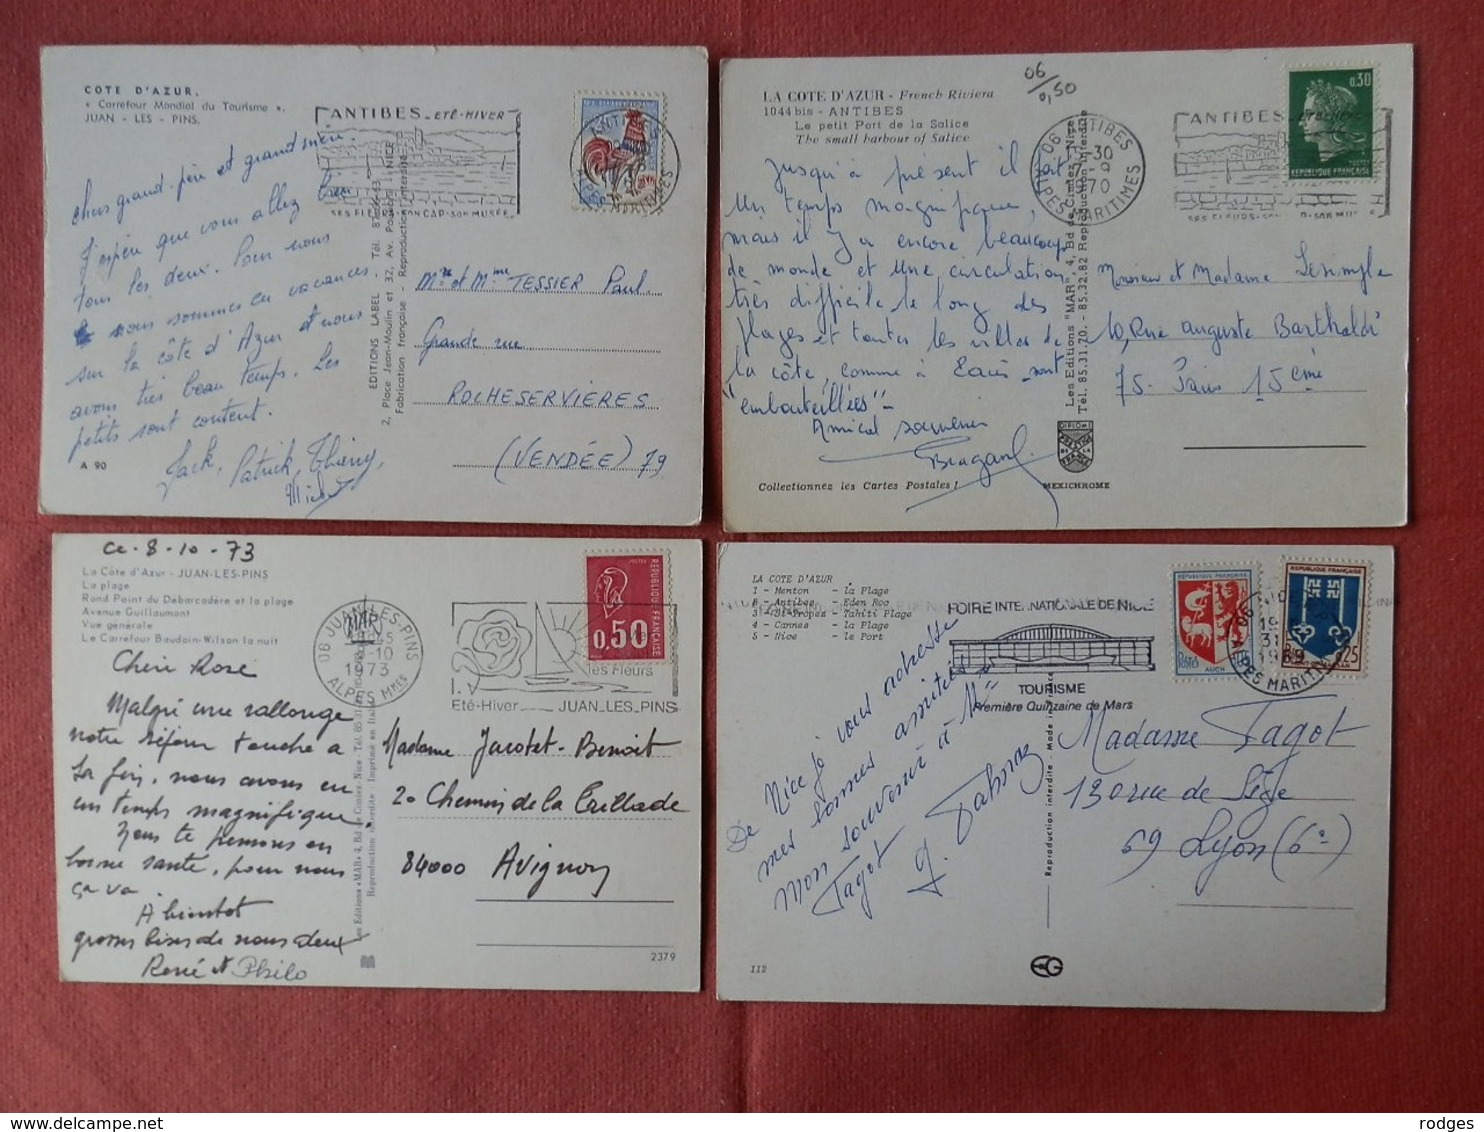 COTE D'AZUR.
« Carrefour Mondial du Tourisme ».
JUAN - LES - PINS.
ANTIBES_ETÉ-HIVER
chers grand-père et grand mère.
J'espère que vous allez bien
tous les deux. Pour nous
nous sommes en vacances
sur la côte d'Azur et nous
avons très beau temps. Les
petits sont content.
Jack, Patrick, Thierry,
A 90
EDITIONS LABEL
2, Place Jean-Moulin et 32, Av.
Fabrication française - Reproduction interdite
Mr et Mme TESSIER Paul
Grande rue
ROCHESERVIÈRES
(VENDÉE) 79
06
0,50
LA COTE D'AZUR - French Riviera
1044 bis - ANTIBES
Le petit Port de la Salice
The small harbour of Salice
06 ANTIBES
ALPES MARITIMES
ANTIBES
0,30
REPUBLIQUE FRANÇAISE
Jusqu'à présent il fait
un temps magnifique,
mais il y a encore beaucoup
de monde et une circulation
très difficile le long des
plages et toutes les villes de
la côte, comme à Paris sont
"embouteillées"-
Amical souvenir
Collectionnez les Cartes Postales !
MEXICHROME
Les Editions "MAR", 4, Bd de Cimiez - Nice
Tél. 85.31.70. - 85.32.82 Reproduction interdite
Monsieur et Madame Lesimple
10, Rue Auguste Bartholdi
75- Paris 15ème
Ce 8-10-73
La Côte d'Azur - JUAN-LES-PINS
La plage
Rond Point du Débarcadère et la plage
Avenue Guillaumont
Vue générale
Le Carrefour Baudoin-Wilson la nuit
06 JUAN-LES-PINS
-10
1973
ALPES Mmes
les Fleurs
Eté-Hiver JUAN_LES_PINS
0,50
REPUBLIQUE FRANÇAISE
Chère Rose
Malgré une rallonge
notre séjour touche à
sa fin, nous avons eu
un temps magnifique.
Nous te pensons en
bonne santé, pour nous
ça va.
A bientôt
grosses bises de nous deux
René et Philo
Les Editions «MAR» 4, Bd de Cimiez - Nice
Reproduction interdite - Imprimé en Italie
Madame Jacotet-Benoit
20 Chemin de la Croillade
84000 Avignon
2379
LA COTE D'AZUR
1 - Menton - la Plage
2 - Antibes - Eden Roc
3 - St-Tropez - Tahiti Plage
4 - Cannes - la Plage
5 - Nice - le Port
FOIRE INTERNATIONALE DE NICE
TOURISME
Première Quinzaine de Mars
AUCH
REPUBLIQUE FRANÇAISE
De Nice je vous adresse
mes bonnes amitiés
mon souvenir à Mr
Tagot
Reproduction interdite - Made in France
Madame Tagot
130 rue de Sèze
69 Lyon (6e)
112
rodges